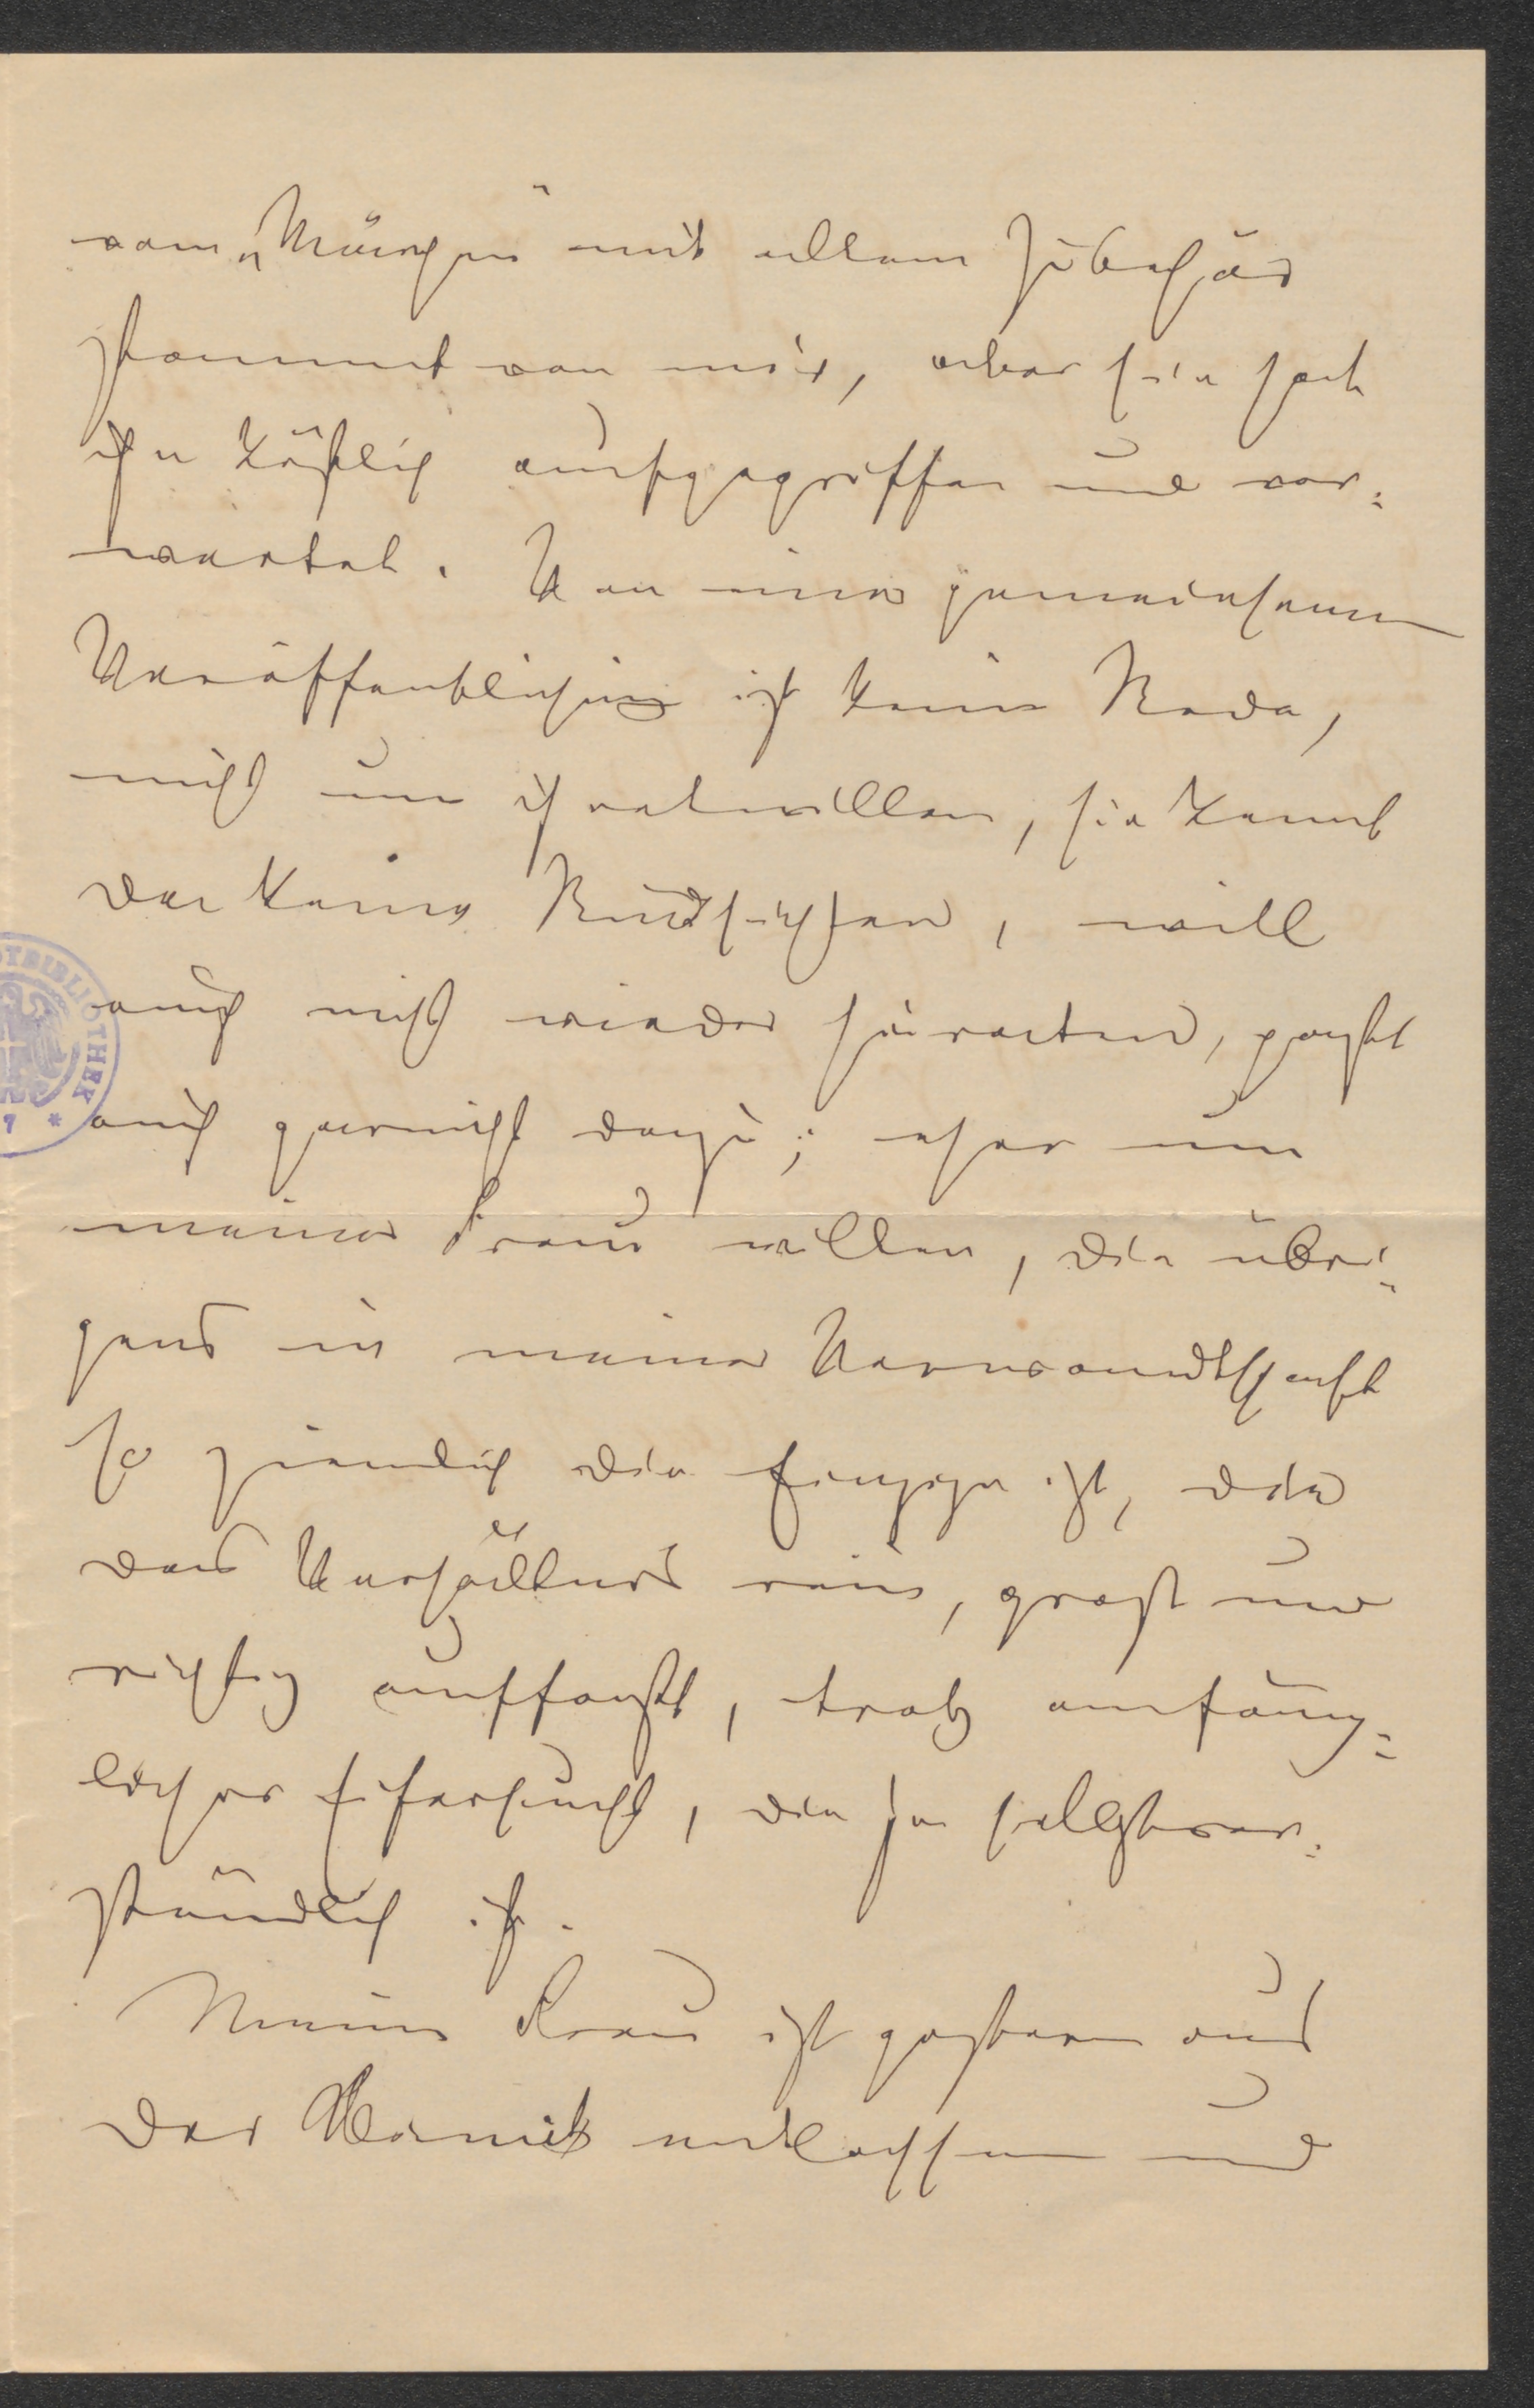 vom „Mänchen" mit allem Zubehör
stammt von mir, aber sie hat
ihn köstlich aufgegriffen und ver=
wertet. Von einer gemeinsamen
Veröffentlichung ist keine Rede,
nicht um ihretwillen, sie kennt
da keine Rücksichten, will
auch nicht wieder heiraten, paßt
auch garnicht dazu; aber um
meiner Frau willen, die übri=
gens in meiner Verwandtschaft
so ziemlich die Einzige ist, die
das Verhältnis rein, groß und
richtig auffaßt, trotz anfäng=
licher Eifersucht, die ja selbstver=
ständlich ist.
Meine Frau ist gestern aus
der Klinik entlassen und
OTBIBLIOTHEK